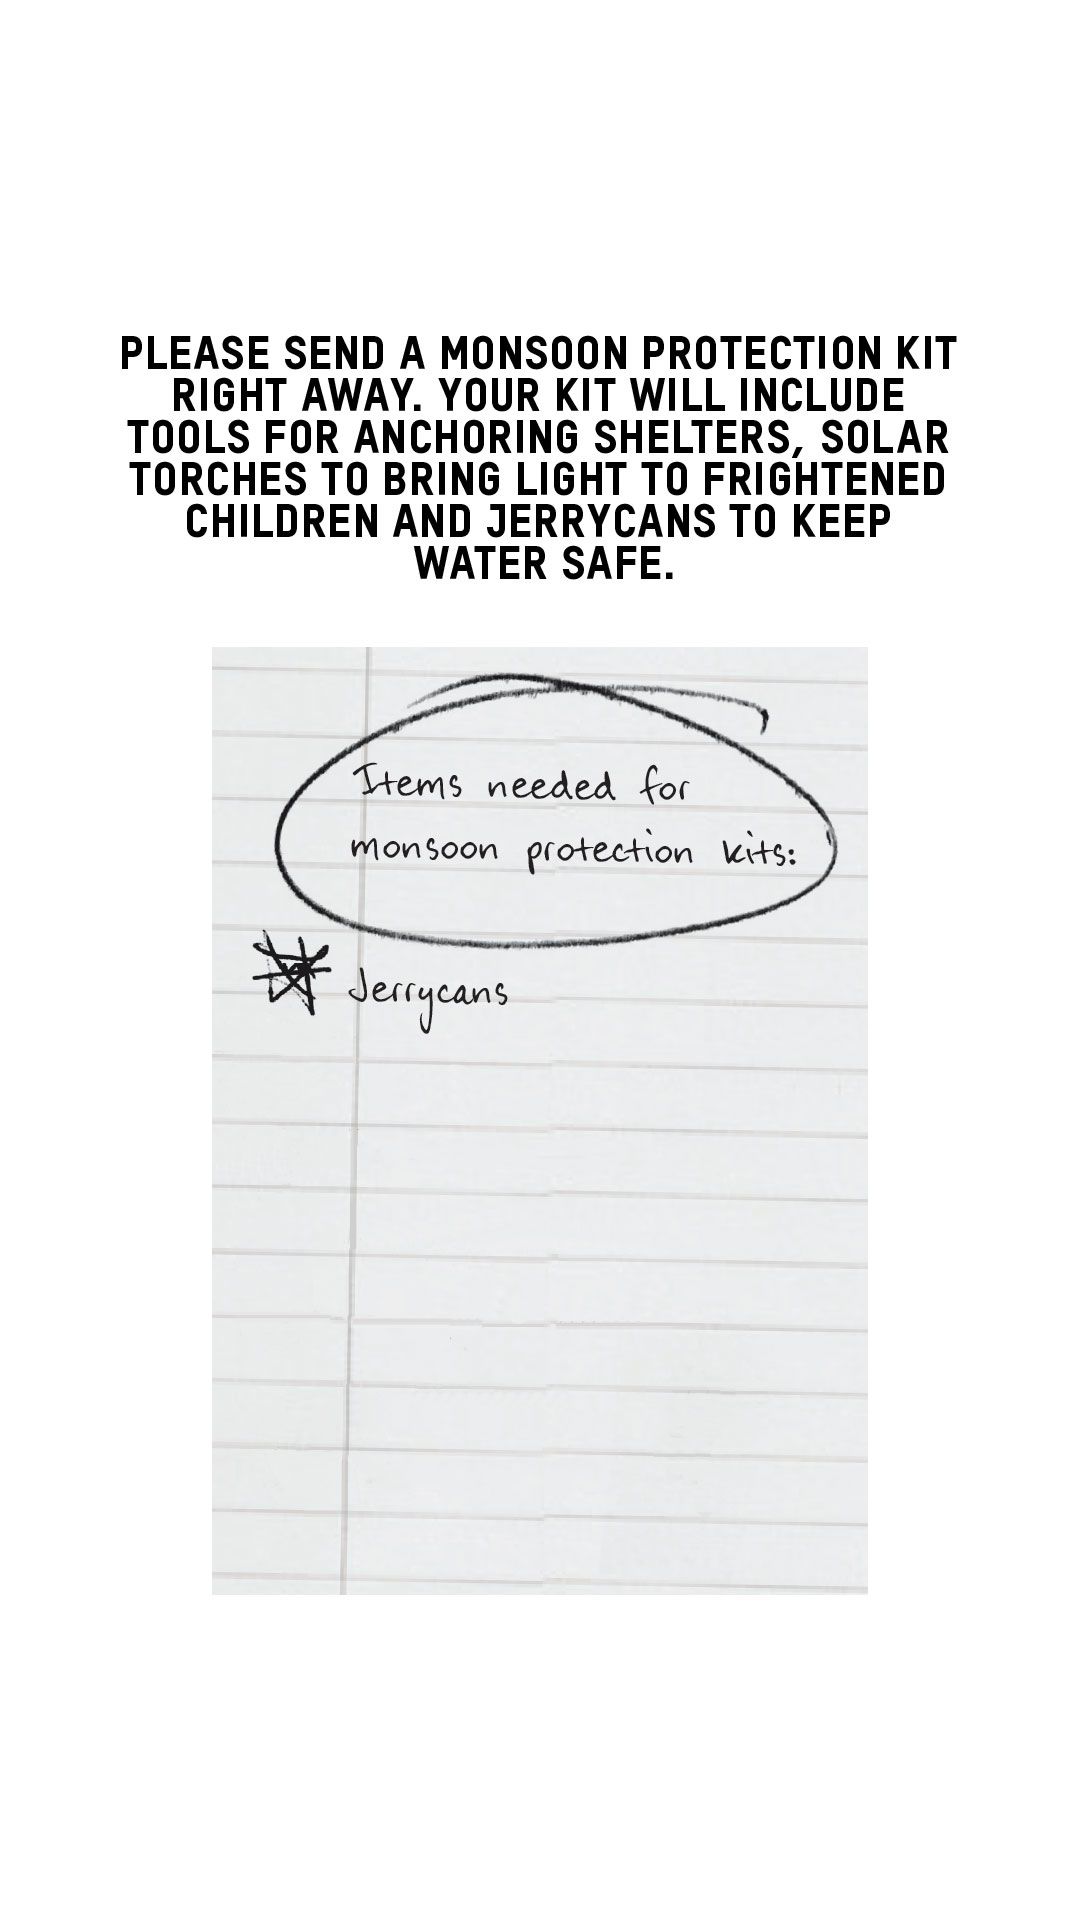 PLEASE SEND A MONSOON PROTECTION KIT
RIGHT AWAY. YOUR KIT WILL INCLUDE
TOOLS FOR ANCHORING SHELTERS, SOLAR
TORCHES TO BRING LIGHT TO FRIGHTENED
CHILDREN AND JERRYCANS TO KEEP
WATER SAFE.
Items needed for
monsoon protection kits:
Jerrycans